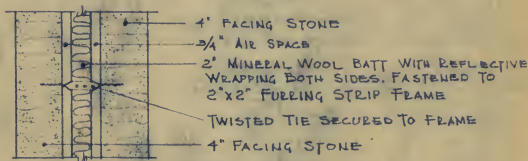 4" FACING STONE
3/4" AIR SPACE
2" MINERAL WOOL BATT WITH REFLECTIVE
WRAPPING BOTH SIDES. FASTENED TO
2"X2" FURRING STRIP FRAME
TWISTED TIE SECURED TO FRAME
4" FACING STONE